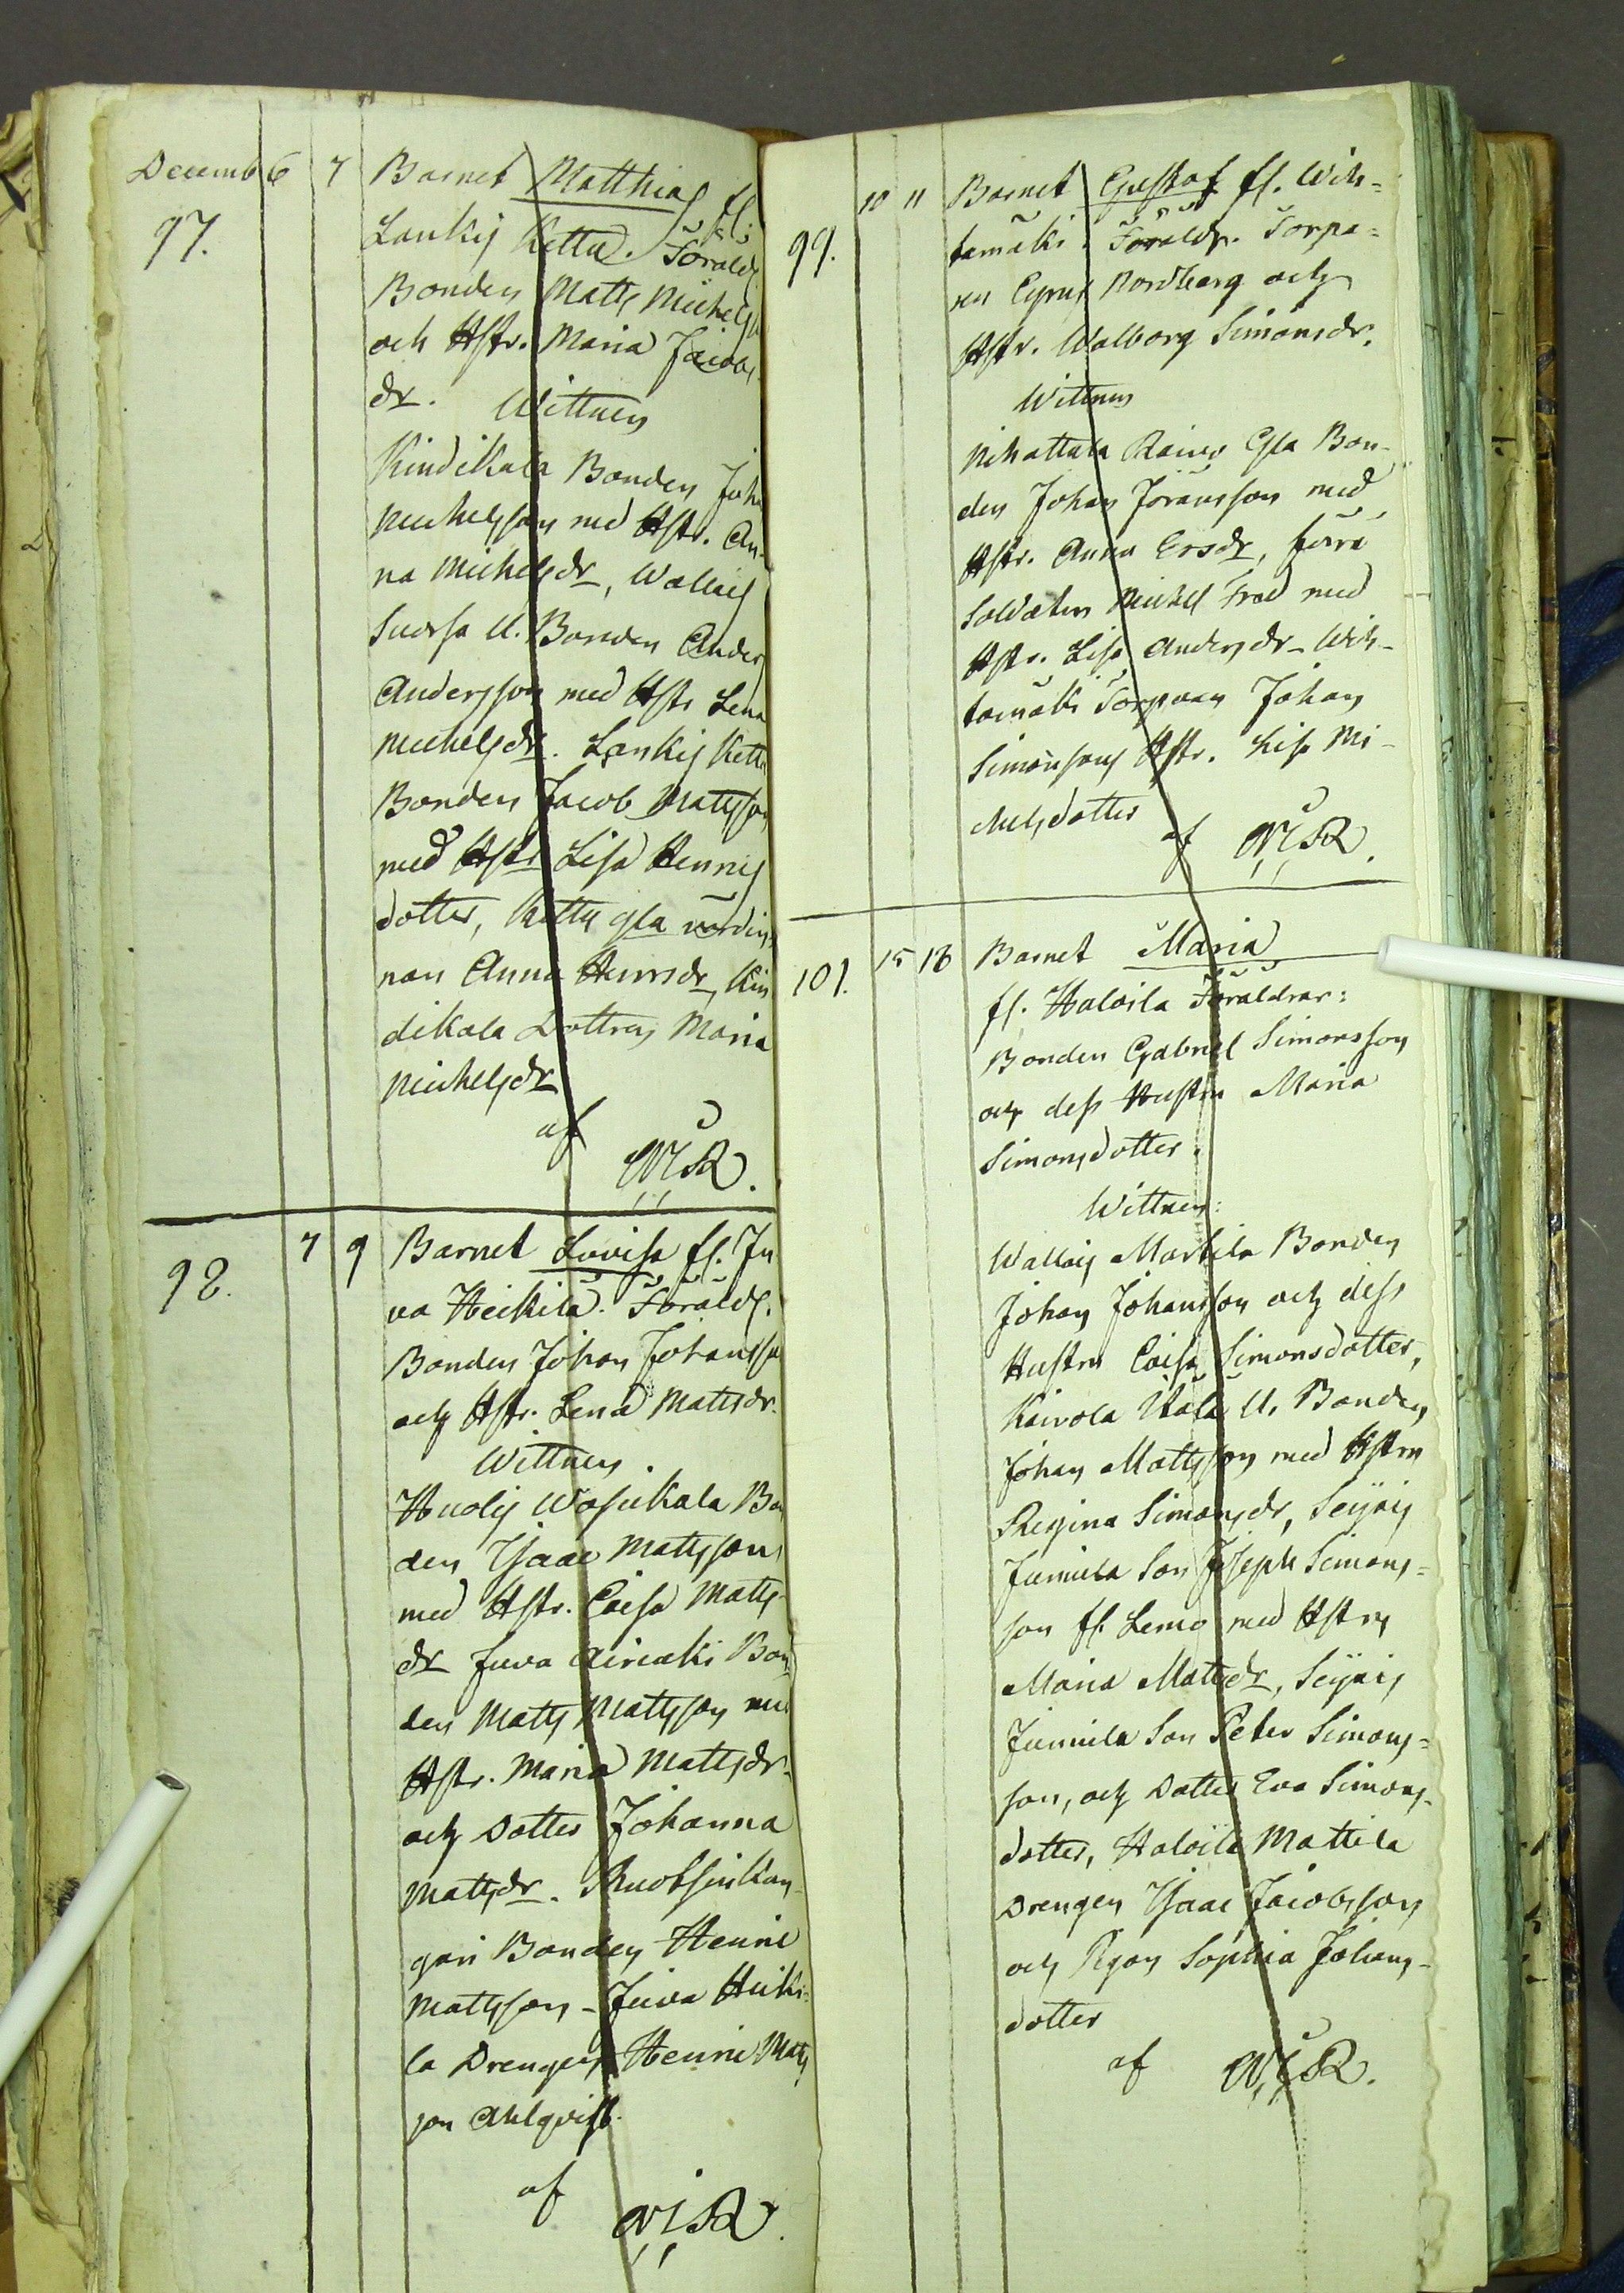 Decemb 6 7 Barnet Matthias fl:
97. Lankij Kettu. Föräldr
Bonden Matts Michelss
och Hstr. Maria Jacobs
dr. Wittnen
Kindikala Bonden Joha
Michelsson med Hstr. An-
na Michelsdr, Wallais
Suorsa U. Bonden Anders
Andersson med Hstr Lena
Michelsdr. Lankij Kettu
Bonden Jacob Mattsson
med Hstr Lisa Henrics
dotter, Kettu gla värdin
nan Anna Henrsdr, Kin
dikala Dottren Maria
Michelsdr
af MSR.
98. 7 9 Barnet Lovisa fl. Ju
va Heikilä. Föräldr.
Bonden Johan Johansso
och Hstr. Lena Mattsdr.
Wittnen.
Huolij Wäsikkala Bon
den Isaac Mattsson
med Hstr. Caisa Matts-
dr Juva Airiaki Bon
den Matts Mattsson med
Hstr. Maria Mattsdr-
och Dotter Johanna
Mattsdr. Ruotsinkan-
gari Bonden Henric
Mattsson - Juva Heiki-
la Drengen Henric Mats
son Ahlqvist.
af MSR.
99. 10 11 Barnet Gustaf fl. Wih-
tamäki. Föräldr. Torpa-
ren Cyrus Nordberg och
Hstr. Walborg Simonsdr.
Wittnen
Nihattula Gla Bon-
den Johan Jöransson med
Hstr. Anna Ersdr, förra
Soldaten Michel Frod med
Hstr. Lisa Andersdr- Wih-
tamäki Torparn Johan
Simonsons Hstr. Lisa Mi-
chelsdotter
af MSR.
101. 15 18 Barnet Maria
fl. Haloila Föräldrar:
Bonden Gabriel Simonsson
och dess Hustru Maria
Simonsdotter.
Wittnen:
Wallais Martila Bonden
Johan Johansson och dess
Hustru Caisa Simonsdotter,
Kaivola Utala U. Bonden
Johan Mattsson med Hstru
Regina Simonsdr, Seijais
Jumila Son Joseph Simons-
son fl. Lemo med Hstru
Maria Mattsdr, Seijais
Jumila Son Peter Simons-
son, och Dotter Eva Simons-
dotter, Haloila Mattila
Drengen Isaac Jacobsson
och Pigan Sophia Johans-
dotter
af MSR.